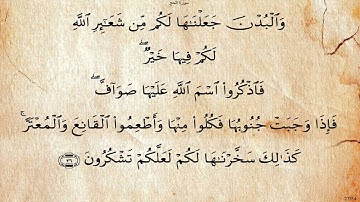 سورة الحج
وَالْبُدْنَ جَعَلْنَاهَا لَكُم مِّن شَعَائِرِ اللَّهِ
لَكُمْ فِيهَا خَيْرٌ ۖ
فَاذْكُرُوا اسْمَ اللَّهِ عَلَيْهَا صَوَافَّ ۖ
فَإِذَا وَجَبَتْ جُنُوبُهَا فَكُلُوا مِنْهَا وَأَطْعِمُوا الْقَانِعَ وَالْمُعْتَرَّ ۚ
كَذَٰلِكَ سَخَّرْنَاهَا لَكُمْ لَعَلَّكُمْ تَشْكُرُونَ ﴿٣٦﴾